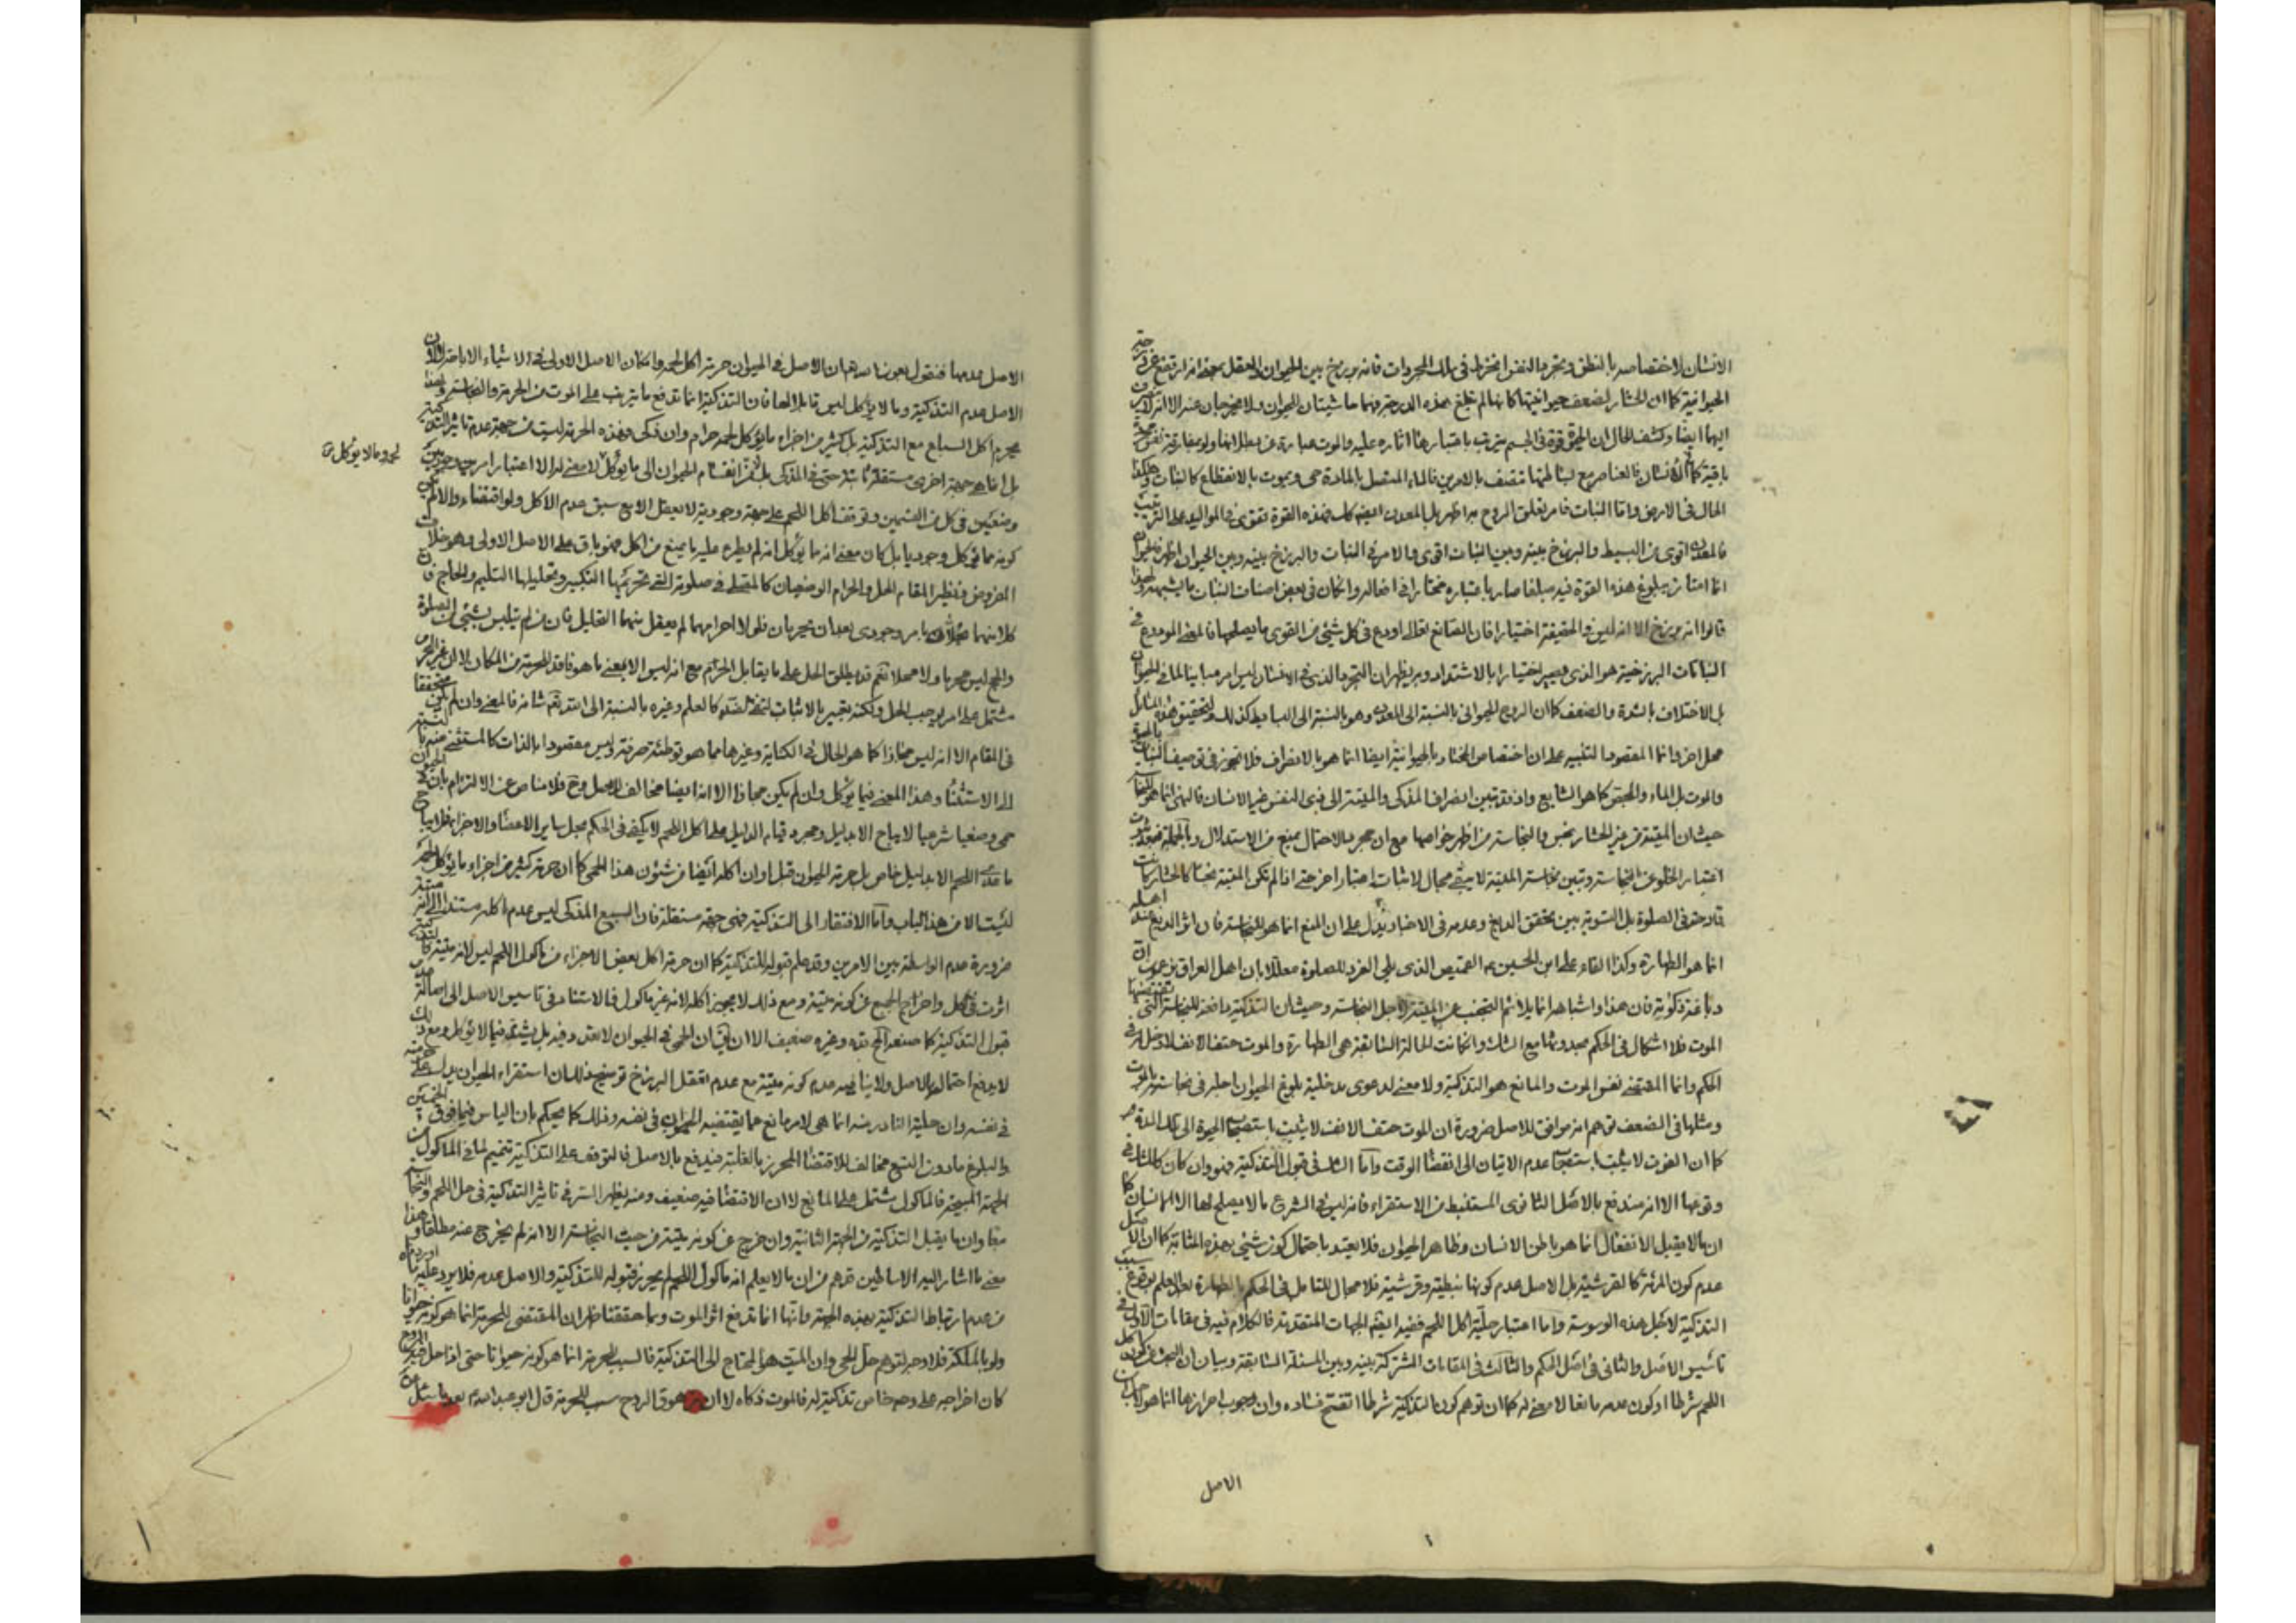 الانسان لاختصاصه بالنطق وتجرد النفس انخرط في سلك المجردات فانه برزخ بين الحيوان والعقل
الحيوانية كما ان الحشار لضعف حيوانيتها كانها لم تبلغ هذه الدرجة
ايضا وكشف الحال ان الحيوة قوة في الجسم يترتب باعتبارها اثاره عليه والموت عبارة عن بطلانها
باقية كما في الانسان فالعناصر مع بساطتها تتصف بالامرين فالماء المتصل بالمادة حي ويموت بالانقطاع كالنبات وهكذا
الحال في الارض واما النبات فامر تعلق الروح به اظهر بل المعدن ايضا كك فهذه القوة تقوى في المواليد على الترتيب
فالمعدن اقوى من البسيط والبرزخ بينه وبين النبات اقوى والامر في النبات والبرزخ بينه وبين الحيوان اظهر
انما امتاز ببلوغ هذه القوة فيه مبلغا صار باعتباره مختارا في افعاله وان كان في بعض اصناف النبات ما يشبهه ولهذا
قالوا انه برزخ الا انه ليس في الحقيقة اختيارا فان الصانع تعالى اودع في كل شيئ من القوى ما يصلحها فالمعنى المودع في
النباتات البرزخية هو الذي يصير اختيارا بالاشتداد وبه يظهر ان التجرد الذي في الانسان ليس امرا مباينا لما في الحيوان
بل الاختلاف بالشدة والضعف كما ان الروح الحيواني بالنسبة الى المعدن وهو بالنسبة الى البسايط كذلك ولتحقيق هذه المسائل
محل اخر وانما المقصود التنبيه على ان اختصاص المختار بالحيوانية ايضا انما هو بالانصراف فلا تجوز في توصيف النبات بالحيوة
والموت بل الماء والحبوة كما هو الشايع واذ قد تبين انصراف المذكى والميتة الى ذي النفس غير الانسان فالنهي انما هو للنجاسة
حيث ان الميتة من غير الحشار نجس والنجاسة من اظهر خواصها مع ان مجرد الاحتمال يمنع من الاستدلال وبالجملة فبعد ثبوت
اعتبار الخلو عن النجاسة وتبين نجاسة الميتة لا يبقى مجال لاثبات اعتبار اخر حتى اذا لم تكن الميتة نجسا كالحشار كانت
قادحة في الصلوة بل التسوية بين تحقق الدبغ وعدمه في الاخبار يدل على ان المنع انما هو للنجاسة فان اثر الدبغ عند اهله
انما هو الطهارة وكذا القاء علي بن الحسين ع القميص الذي يلي الفرو للصلوة معللا بان اهل العراق يزعمون ان
دباغته ذكوته فان هذا واشباهه انما يلائم التجنب عن الميتة لاجل النجاسة وحيث ان التذكية دافعة للنجاسة التي يقتضيها
الموت فلا اشكال في الحكم بحدوثها مع الشك وان كانت الحالة السابقة هي الطهارة والموت حتف الانف لا دخل له في
الحكم وانما المقتضي نفس الموت والمانع هو التذكية ولا معنى لدعوى مدخلية بلوغ الحيوان اجله في نجاسته بالموت
ومثلها في الضعف توهم انه موافق للاصل ضرورة ان الموت حتف الانف لا يثبت باستصحاب الحيوة الى تلك المدة
كما ان الفوت لا يثبت باستصحاب عدم الاتيان الى انقضاء الوقت واما الشك في قبول التذكية فهو وان كان كالشك في
وقوعها الا انه مندفع بالاصل الثانوي المستنبط من الاستقراء فانه ليس في الشرع ما لا يصلح لها الا الانسان كما
ان ما لا يقبل الانفعال انما هو باطن الانسان وظاهر الحيوان فلا يعتد باحتمال كون شيئ بهذه المثابة كما ان الاصل
عدم كون المرئة كالقرشية بل الاصل عدم كونها نبطية وقرشية فلا مجال للتامل في الحكم بالطهارة بعد العلم بوقوع
التذكية لاجل هذه الوسوسة واما اعتبار حلية اكل اللحم ففيه ايضا الجهات المتقدمة فالكلام فيه في مقامات الاول في
تاسيس الاصل والثاني في اصل الحكم والثالث في المقامات المشتركة بينه وبين المسئلة السابقة وبيان ان البحث عن كون اكل
اللحم شرطا او كون عدمه مانعا لا معنى له كما ان توهم كون التذكية شرطا اتضح فساده وان وجوب احرازها انما هو لان
الاصل
الاصل عدمها فنقول بعون الله ان الاصل في الحيوان حرمة اكل لحمه وان كان الاصل الاولي في الاشياء الاباحة
الاصل عدم التذكية وما لا يؤكل ليس قابلا لها فان التذكية انما تدفع ما يترتب على الموت من الحرمة والنجاسة ولهذا
يحرم اكل السباع مع التذكية بل كثير من اجزاء ما يؤكل لحمه حرام وان ذكى وهذه الحرمة ليست من جهة عدم تاثير التذكية
بل انما هي جهة اخرى مستقلة ثابتة حتى في المذكى بل انقسام الحيوان الى ما يؤكل لا معنى له الا اعتبار امر
لحمه وما لا يؤكل
في كل من القسمين وتوقف اكل اللحم على جهة وجودية لا يعقل الا مع سبق عدم الاكل ولو اقتضاء والا لم يكن
كونه مما يؤكل وجوديا بل كان معنى انه ما يؤكل انه لم يطرء عليه ما يمنع من اكله فهو باق على الاصل الاولي وهو خلاف
المفروض ونظير المقام الحل والحرام الوضعيان كالمصلي في صلوته التي تحريمها التكبير وتحليلها التسليم والحاج فان
كلا منهما بامر وجودي بعد ان يحرمان فلولا احرامهما لم يعقل منهما التحليل فان من لم يتلبس بشيئ من الصلوة
والحج ليس محرما ولا محلا نعم قد يطلق الحل على ما يقابل الحرم مع انه ليس الا بمعنى ما هو فاقد للحرمة من المكان
مشتمل على امر يوجب الحل ولكنه تعبير بالاثبات لنفي الضد كالعلم وغيره بالنسبة الى الله تعالى شانه فالمعنى وان لم يكن
في المقام الا انه ليس مجازا كما هو الحال في الكناية وغيرها مما هو توطئة صرفة وليس مقصودا بالذات كالمستثنى منه
الى الاستثناء وهذا المعنى فيما يؤكل وان لم يكن مجازا الا انه ايضا مخالف للاصل وح فلا مناص عن الالتزام بان في الحيوان
حمى وضعيا شرعيا لا يباح الا بدليل ومجرد قيام الدليل على اكل اللحم لا يكفي في الحكم بحل ساير الاعضاء والاجزاء
ما عدا اللحم الا بدليل خاص بل حرمة الحيوان قبل اوان اكله ايضا من شئون هذا الحمى كما ان حرمة كثير من اجزاء ما يؤكل لحمه
ليست الا من هذا الباب واما الافتقار الى التذكية فهي جهة مستقلة فان السبع المذكى ليس عدم اكله مستندا الى انه ميتة
ضرورة عدم الواسطة بين الامرين وقد علم قبوله للتذكية كما ان حرمة اكل بعض الاجزاء من ماكول اللحم ليس لانه ميتة
اثرت في الكل واخراج الجميع عن كونه ميتة ومع ذلك لا يجوز اكله لانه غير ماكول فالاستناد في تاسيس الاصل الى اصالة عدم
قبول التذكية كما صنعه المحقق وغيره ضعيف الا ان يق ان الحمى في الحيوان لا تعدد فيه
لا يدفع احتماله بالاصل ولا ينافيه عدم كونه ميتة مع عدم تعقل البرزخ توضيح ذلك ان استقراء الحيوان يدل على
في نفسه وان حلية النادر منه انما هي لامر مانع عما يقتضيه الحيوان في نفسه وذلك كما يحكم بان الياس فيما فوق
والبلوغ ما دون التسع مخالف للاقتضاء المحرز بالغلبة فيدفع بالاصل فالتوقف على التذكية تتميم لما في الماكول من
الجهة المبيحة فالماكول مشتمل على المانع لا ان الاقتضاء فيه ضعيف ومنه يظهر السر في تاثير التذكية في حل اللحم والنجاسة
معا وان ما يقبل التذكية من الجهة الثانية وان خرج عن كونه ميتة من حيث النجاسة الا انه لم يخرج عنه مطلقا وهذا
معنى ما اشار اليه الاساطين قدهم من ان ما لا يعلم انه ماكول اللحم لم يحرز قبوله للتذكية والاصل عدمه فلا يرد عليه ما اوردناه
من عدم ارتباط التذكية بهذه الجهة وانها انما تدفع اثر الموت وبما حققنا ظهر ان المقتضي للحرمة انما هو كونه حيوانا
ولو بالملكة فلا وجه لتوهم حل الحي وان الميت هو المحتاج الى التذكية فالسبب للحرمة انما هو كونه حيوانا حتى اذا حل فيه الروح
كان اخراجه على وجه خاص تذكية له فالموت ذكاه لا ان زهوق الروح سبب للحرمة قال ابو عبد الله ع بعد ما سئل عن